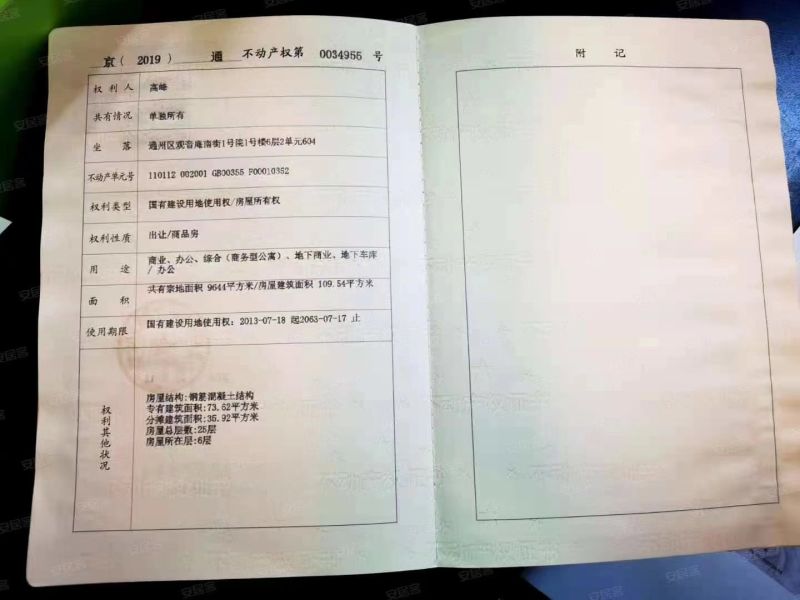 京（ 2019 ） 通 不动产权第 0034955 号
权利人 高峰
共有情况 单独所有
坐落 通州区观音庵南街1号院1号楼6层2单元604
不动产单元号 110112 002001 GB00355 F00010352
权利类型 国有建设用地使用权/房屋所有权
权利性质 出让/商品房
用途 商业、办公、综合（商务型公寓）、地下商业、地下车库
/ 办公
面积 共有宗地面积 9644平方米/房屋建筑面积 109.54平方米
使用期限 国有建设用地使用权：2013-07-18 起2063-07-17 止
权利其他状况
房屋结构:钢筋混凝土结构
专有建筑面积:73.62平方米
分摊建筑面积:35.92平方米
房屋总层数:25层
房屋所在层:6层
附 记
安居客